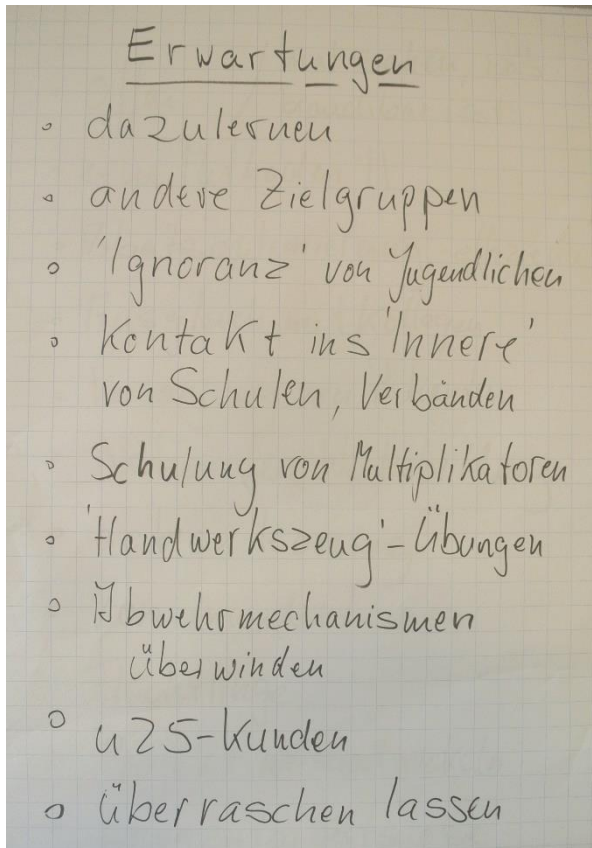 Erwartungen
◦ dazulernen
◦ andere Zielgruppen
◦ 'Ignoranz' von Jugendlichen
◦ Kontakt ins 'Innere'
von Schulen, Verbänden
◦ Schulung von Multiplikatoren
◦ 'Handwerkszeug'-Übungen
◦ Abwehrmechanismen
überwinden
◦ u25-Kunden
◦ überraschen lassen